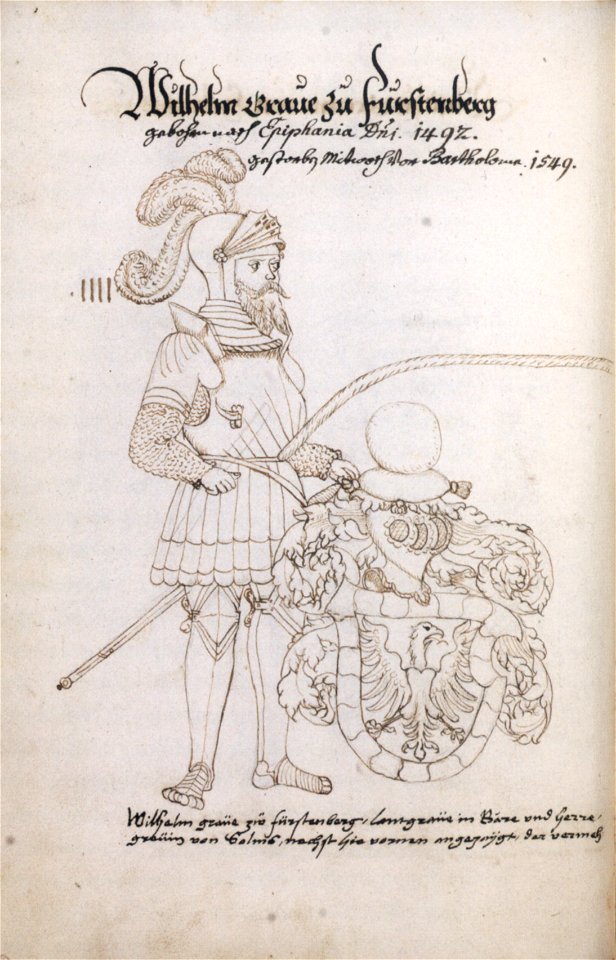 Wilhelm Graue zu Fürstenberg
gebohrn nach Epiphania Dni. 1492.
gestorben Mitwoch Vor Bartholome. 1549.
Wilhelm graüe zů fürstenberg, lantgraüe in Bare und Herre,
greüin von Solms, nechst hie vornen angezeÿgt, der vermeh